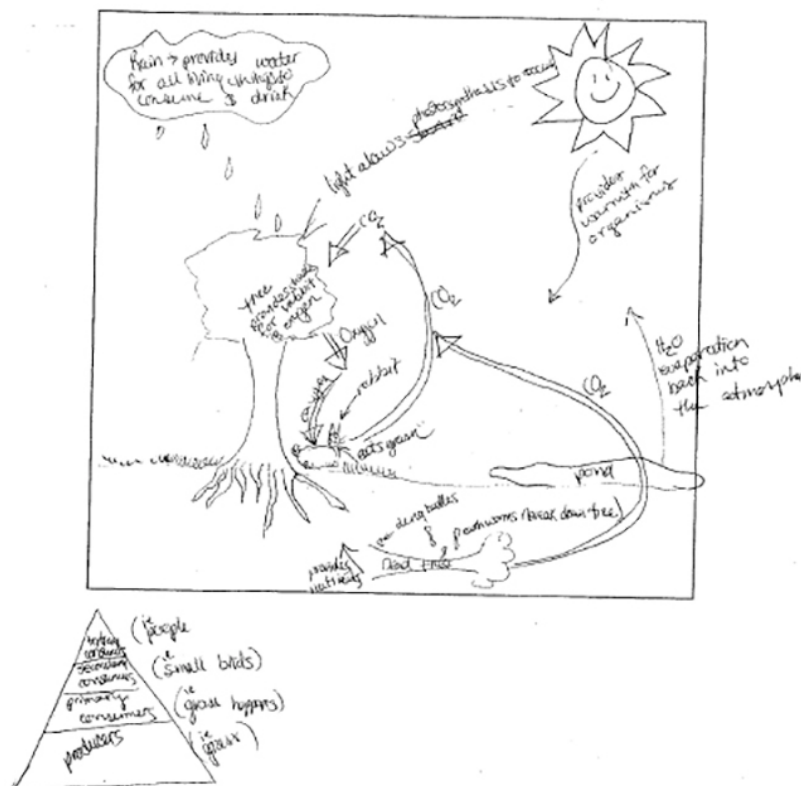 Rain → provides water
for all living things to
consume & drink
light allows photosynthesis to occur
provides
warmth for
organisms
CO2
tree
provides
for rabbit
& oxygen
Oxygen
oxygen
rabbit
CO2
CO2
H2O
evaporation
back into
the atmosphere
eats grass
pond
dung beetles
&
earthworms (break down tree)
provides
nutrients
dead tree
tertiary
consumers
(ie
people
secondary
consumers
(ie
small birds)
primary
consumers
(ie
grass hoppers)
producers
(ie
grass)